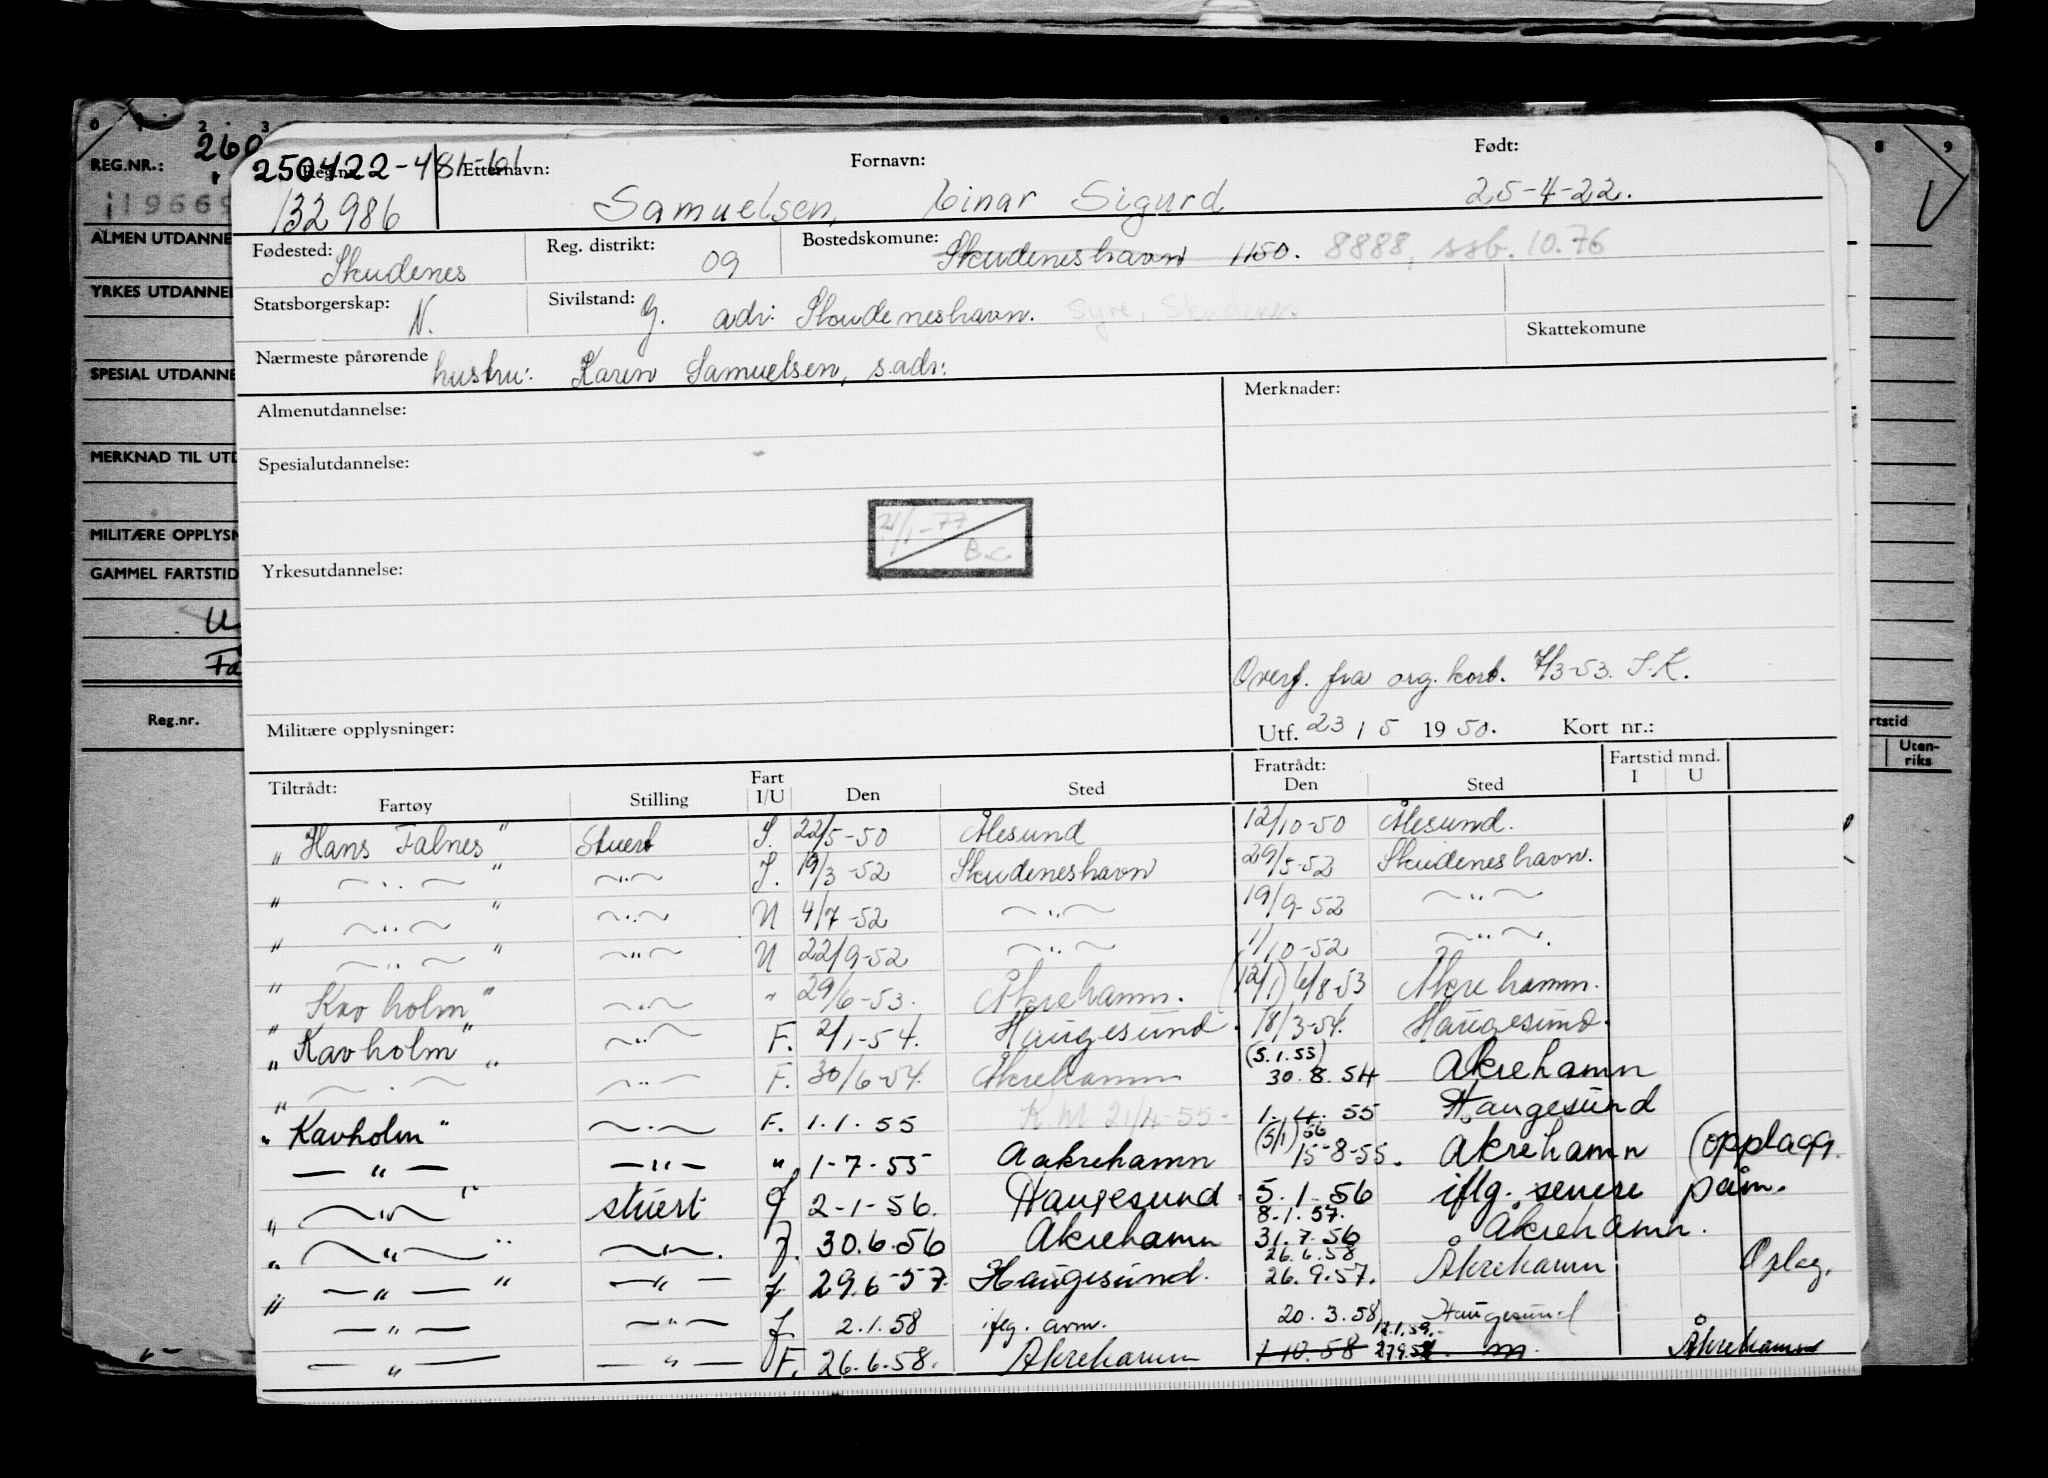 0 1 2 3 8 9
REG.NR.: 260
119669
ALMEN UTDANNE
YRKES UTDANNEL
SPESIAL UTDANNE
MERKNAD TIL UTD
MILITÆRE OPPLYSN
GAMMEL FARTSTID
U
Fa
Reg.nr.
rtstid
Uten-
riks
250422-481-61
Reg.nr. Etternavn: Fornavn: Født:
132986 Samuelsen, Einar Sigurd 25-4-22.
Fødested: Skudenes Reg. distrikt: 09 Bostedskomune: Skudeneshavn 1150. 8888, ssb. 10.76
Statsborgerskap: N. Sivilstand: G. adr: Skudeneshavn. Syre, Skudenes.
Skattekomune
Nærmeste pårørende hustru: Karen Samuelsen, s.adr:
Almenutdannelse: Merknader:
Spesialutdannelse:
21/1-77
B.C.
Yrkesutdannelse:
Overf. fra org. kort. 7/3-53. S.K.
Militære opplysninger: Utf. 23 / 5 1950. Kort nr.:
Tiltrådt: Fratrådt: Fartstid mnd.
Fartøy Stilling Fart I/U Den Sted Den Sted I U
"Hans Falnes" Stuert I. 22/5-50 Ålesund 12/10-50 Ålesund.
" — " — " — " — I. 19/3-52 Skudeneshavn 29/5-52 Skudeneshavn.
" — " — " — " — U 4/7-52 — " — 19/9-52 — " —
" — " — " — " — U 22/9-52 — " — 1/10-52 — " —.
"Kav holm" — " — " 29/6-53. Åkrehamn. (12/1) 6/8-53 Åkrehamn.
"Kavholm" — " — F. 2/1-54. Haugesund. 18/3-54. Haugesund.
" — " — " — " — F. 30/6-54. Åkrehamn (5.1.55) 30.8.54 Akrehamn
"Kavholm" — " — F. 1.1.55 K.M 21/4-55- 1.4.55 Haugesund
— " — — " — " 1-7-55 Aakrehamn (5/1) 56 15-8-55. Akrehamn (opplagg.
" — " — " stuert f 2-1-56. Haugesund. 5.1.56 iflg. senere påm.
" — " — " — " —. f. 30.6.56 Akrehamn 8.1.57. 31.7.56 Åkrehamn.
" — " — " — " — f 29.6-57. Haugesund. 26.6.58 26.9.57. Åkrehamn Oplag.
— " — — " — f 2.1.58 ifлg. avm. 20.3.58 Haugesund
— " — — " — F. 26.6.58. Åkrehamn 1.10.58 12.1.59. 27.9.58. Åkrehamn